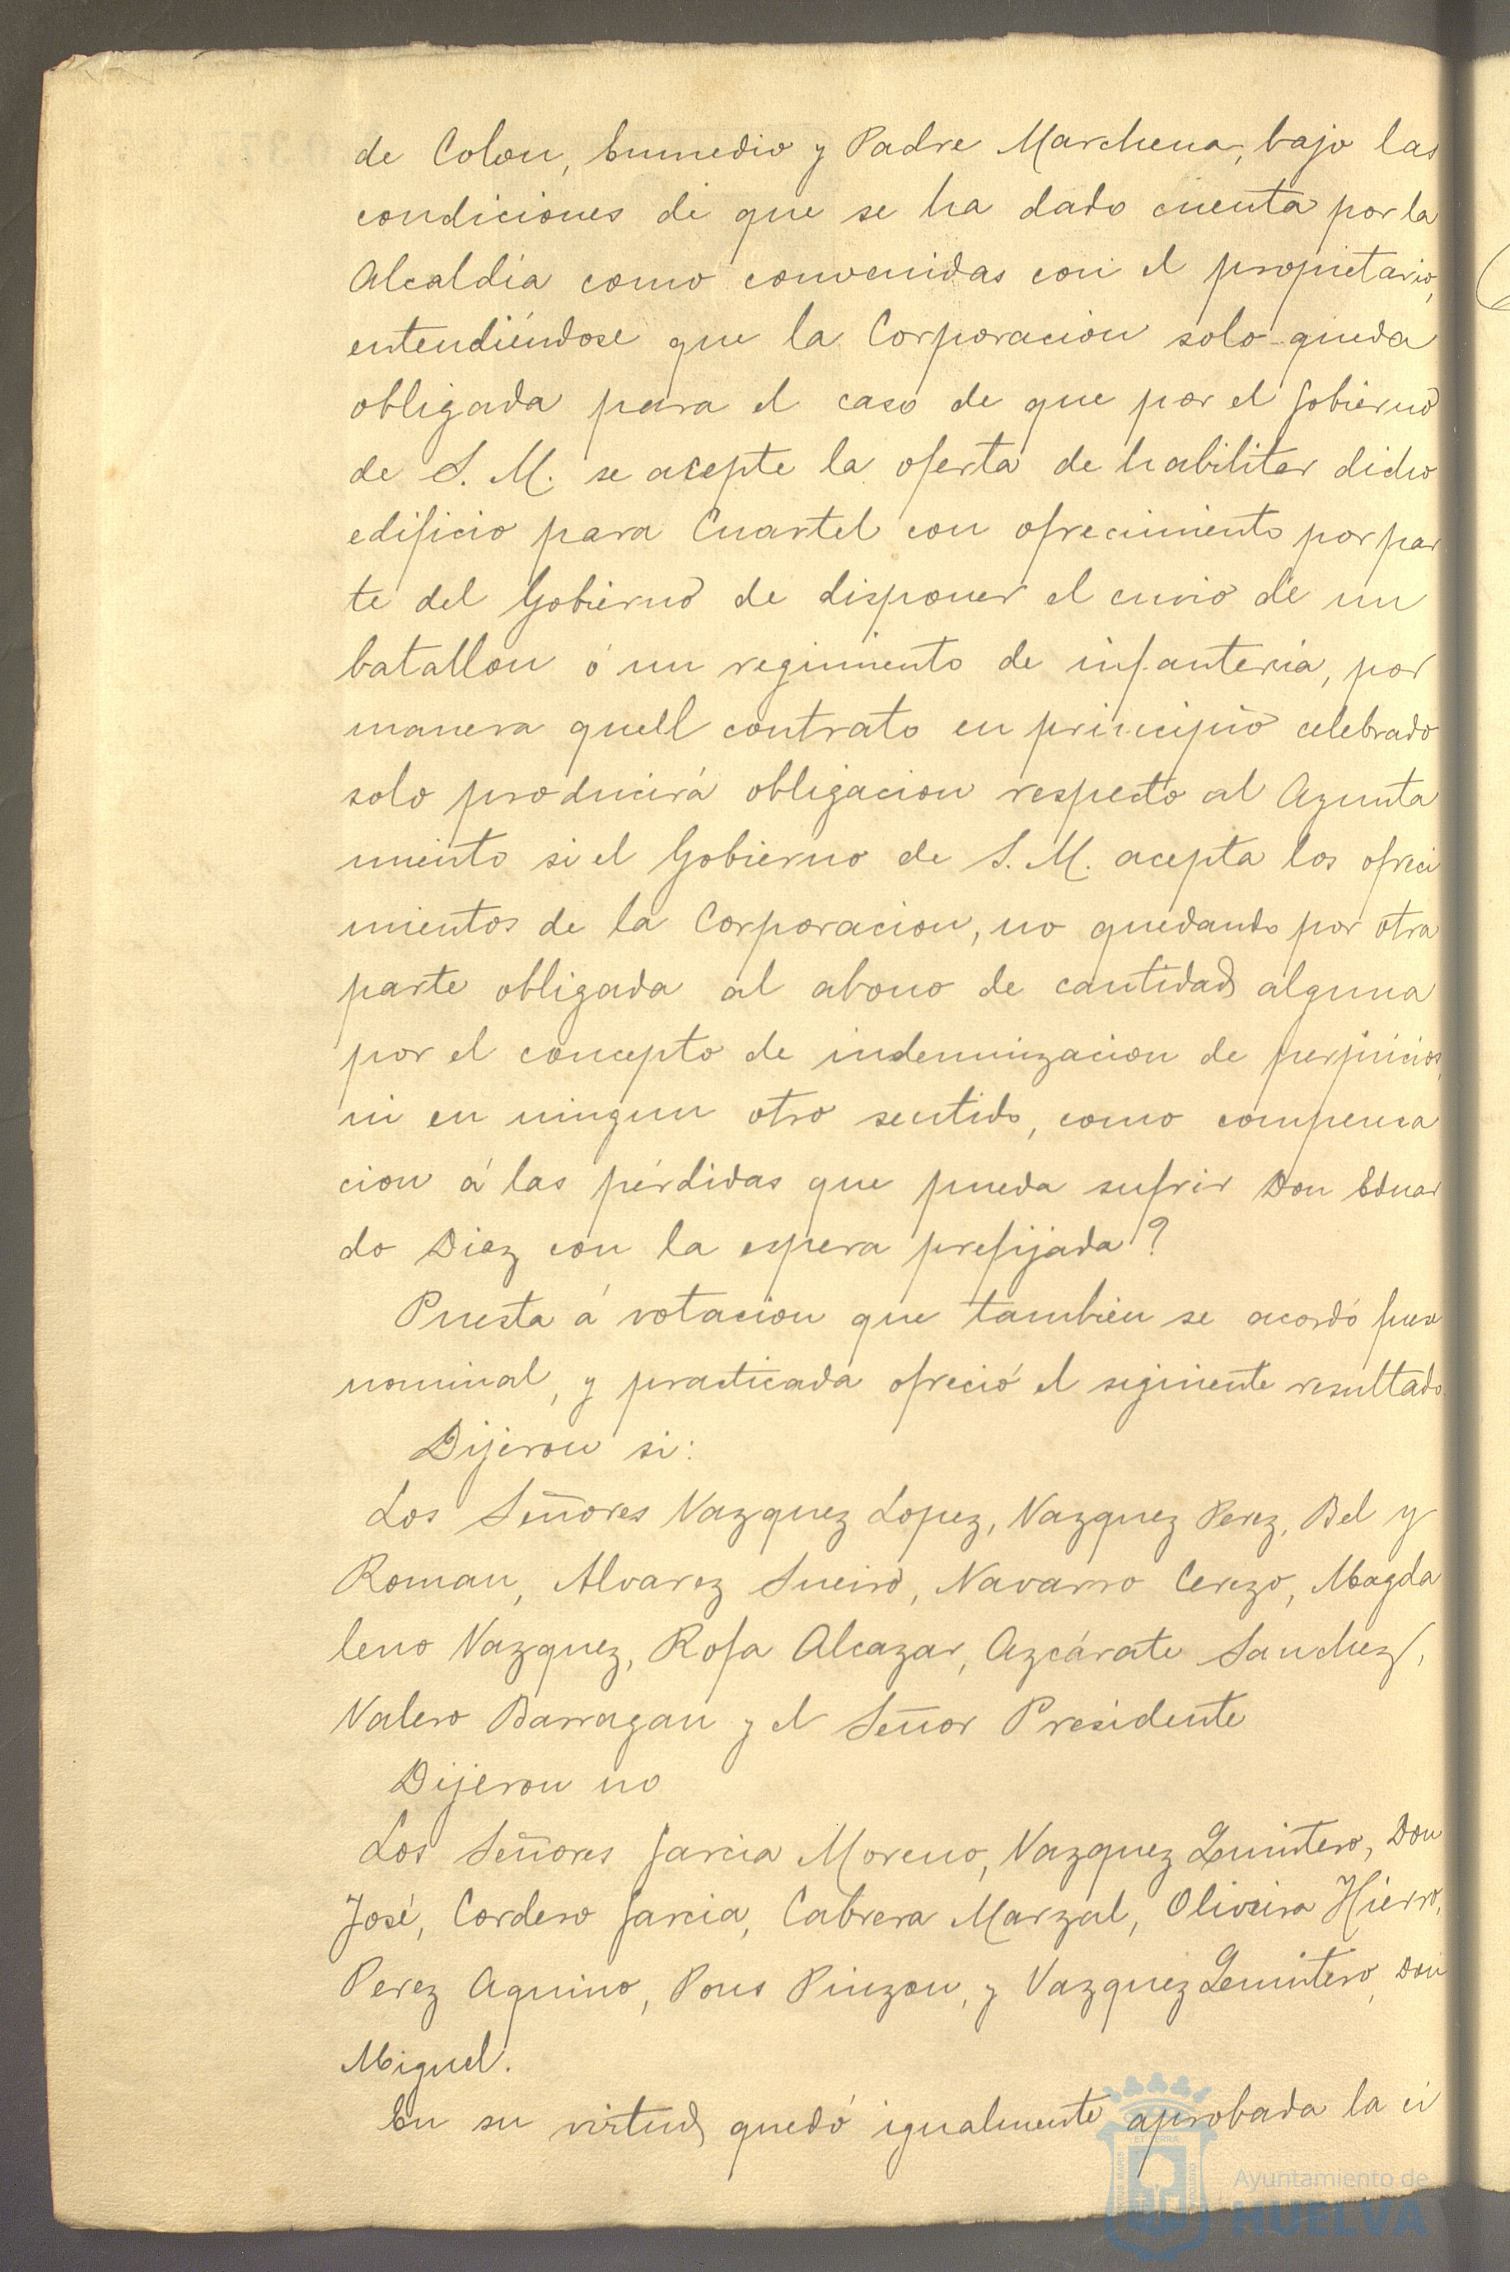 de Colon, Enmedio y Padre Marchena, bajo las
condiciones de que se ha dado cuenta por la
Alcaldia como convenidas con el propietario,
entendiéndose que la Corporacion solo queda
obligada para el caso de que por el Gobierno
de S. M. se acepte la oferta de habilitar dicho
edificio para Cuartel con ofrecimiento por par
te del Gobierno de disponer el envio de un
batallon ó un regimiento de infanteria, por
manera quell contrato en principio celebrado
solo producirá obligacion respecto al Ayunta
miento si el Gobierno de S. M. acepta los ofreci
mientos de la Corporacion, no quedando por otra
parte obligada al abono de cantidad alguna
por el concepto de indemnizacion de perjuicios,
ni en ningun otro sentido, como compensa
cion á las pérdidas que pueda sufrir Don Eduar
do Diez con la espera prefijada?
Puesta á votacion que tambien se acordó fuese
nominal, y practicada ofreció el siguiente resultado.
Dijeron si:
Los Señores Vazquez Lopez, Vazquez Perez, Bel y
Roman, Alvarez Sueiro, Navarro Cerezo, Magda
leno Vazquez, Rofa Alcazar, Azcárate Sanchez,
Valero Barragan y el Señor Presidente
Dijeron no
Los Señores Garcia Moreno, Vazquez Quintero, Don
José, Cordero Garcia, Cabrera Marzal, Oliveira Hierro,
Perez Aquino, Pons Pinzon, y Vazquez Quintero, Don
Miguel.
En su virtud quedó igualmente aprobada la ci
Ayuntamiento de
HUELVA